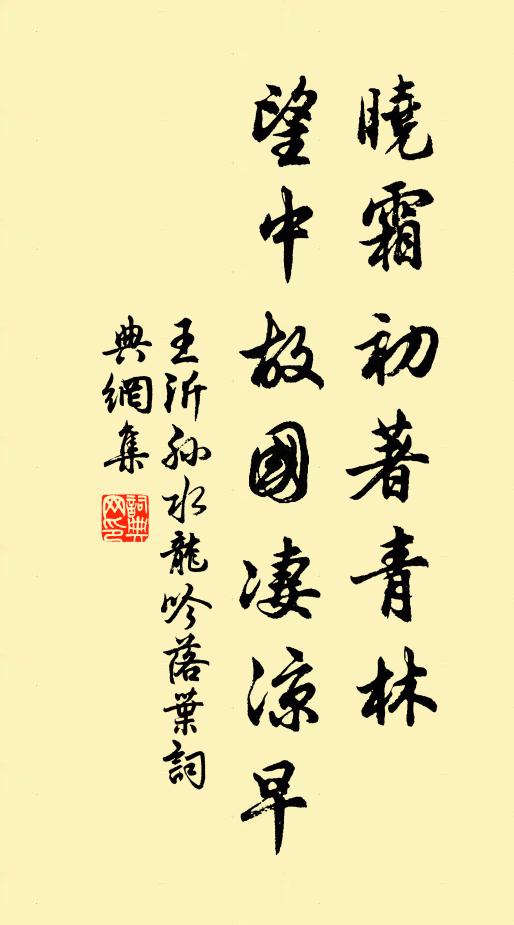 曉霜初著青林
望中故國淒涼早
王沂孫水龍吟落葉詞
典網集
詞典網印